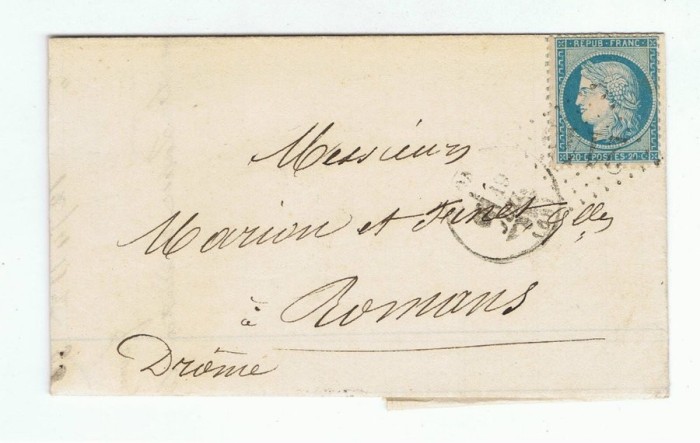 REPUB·FRANC·
20·C·POSTES·20·C
Messieurs
Marion et
à Romans
Drôme